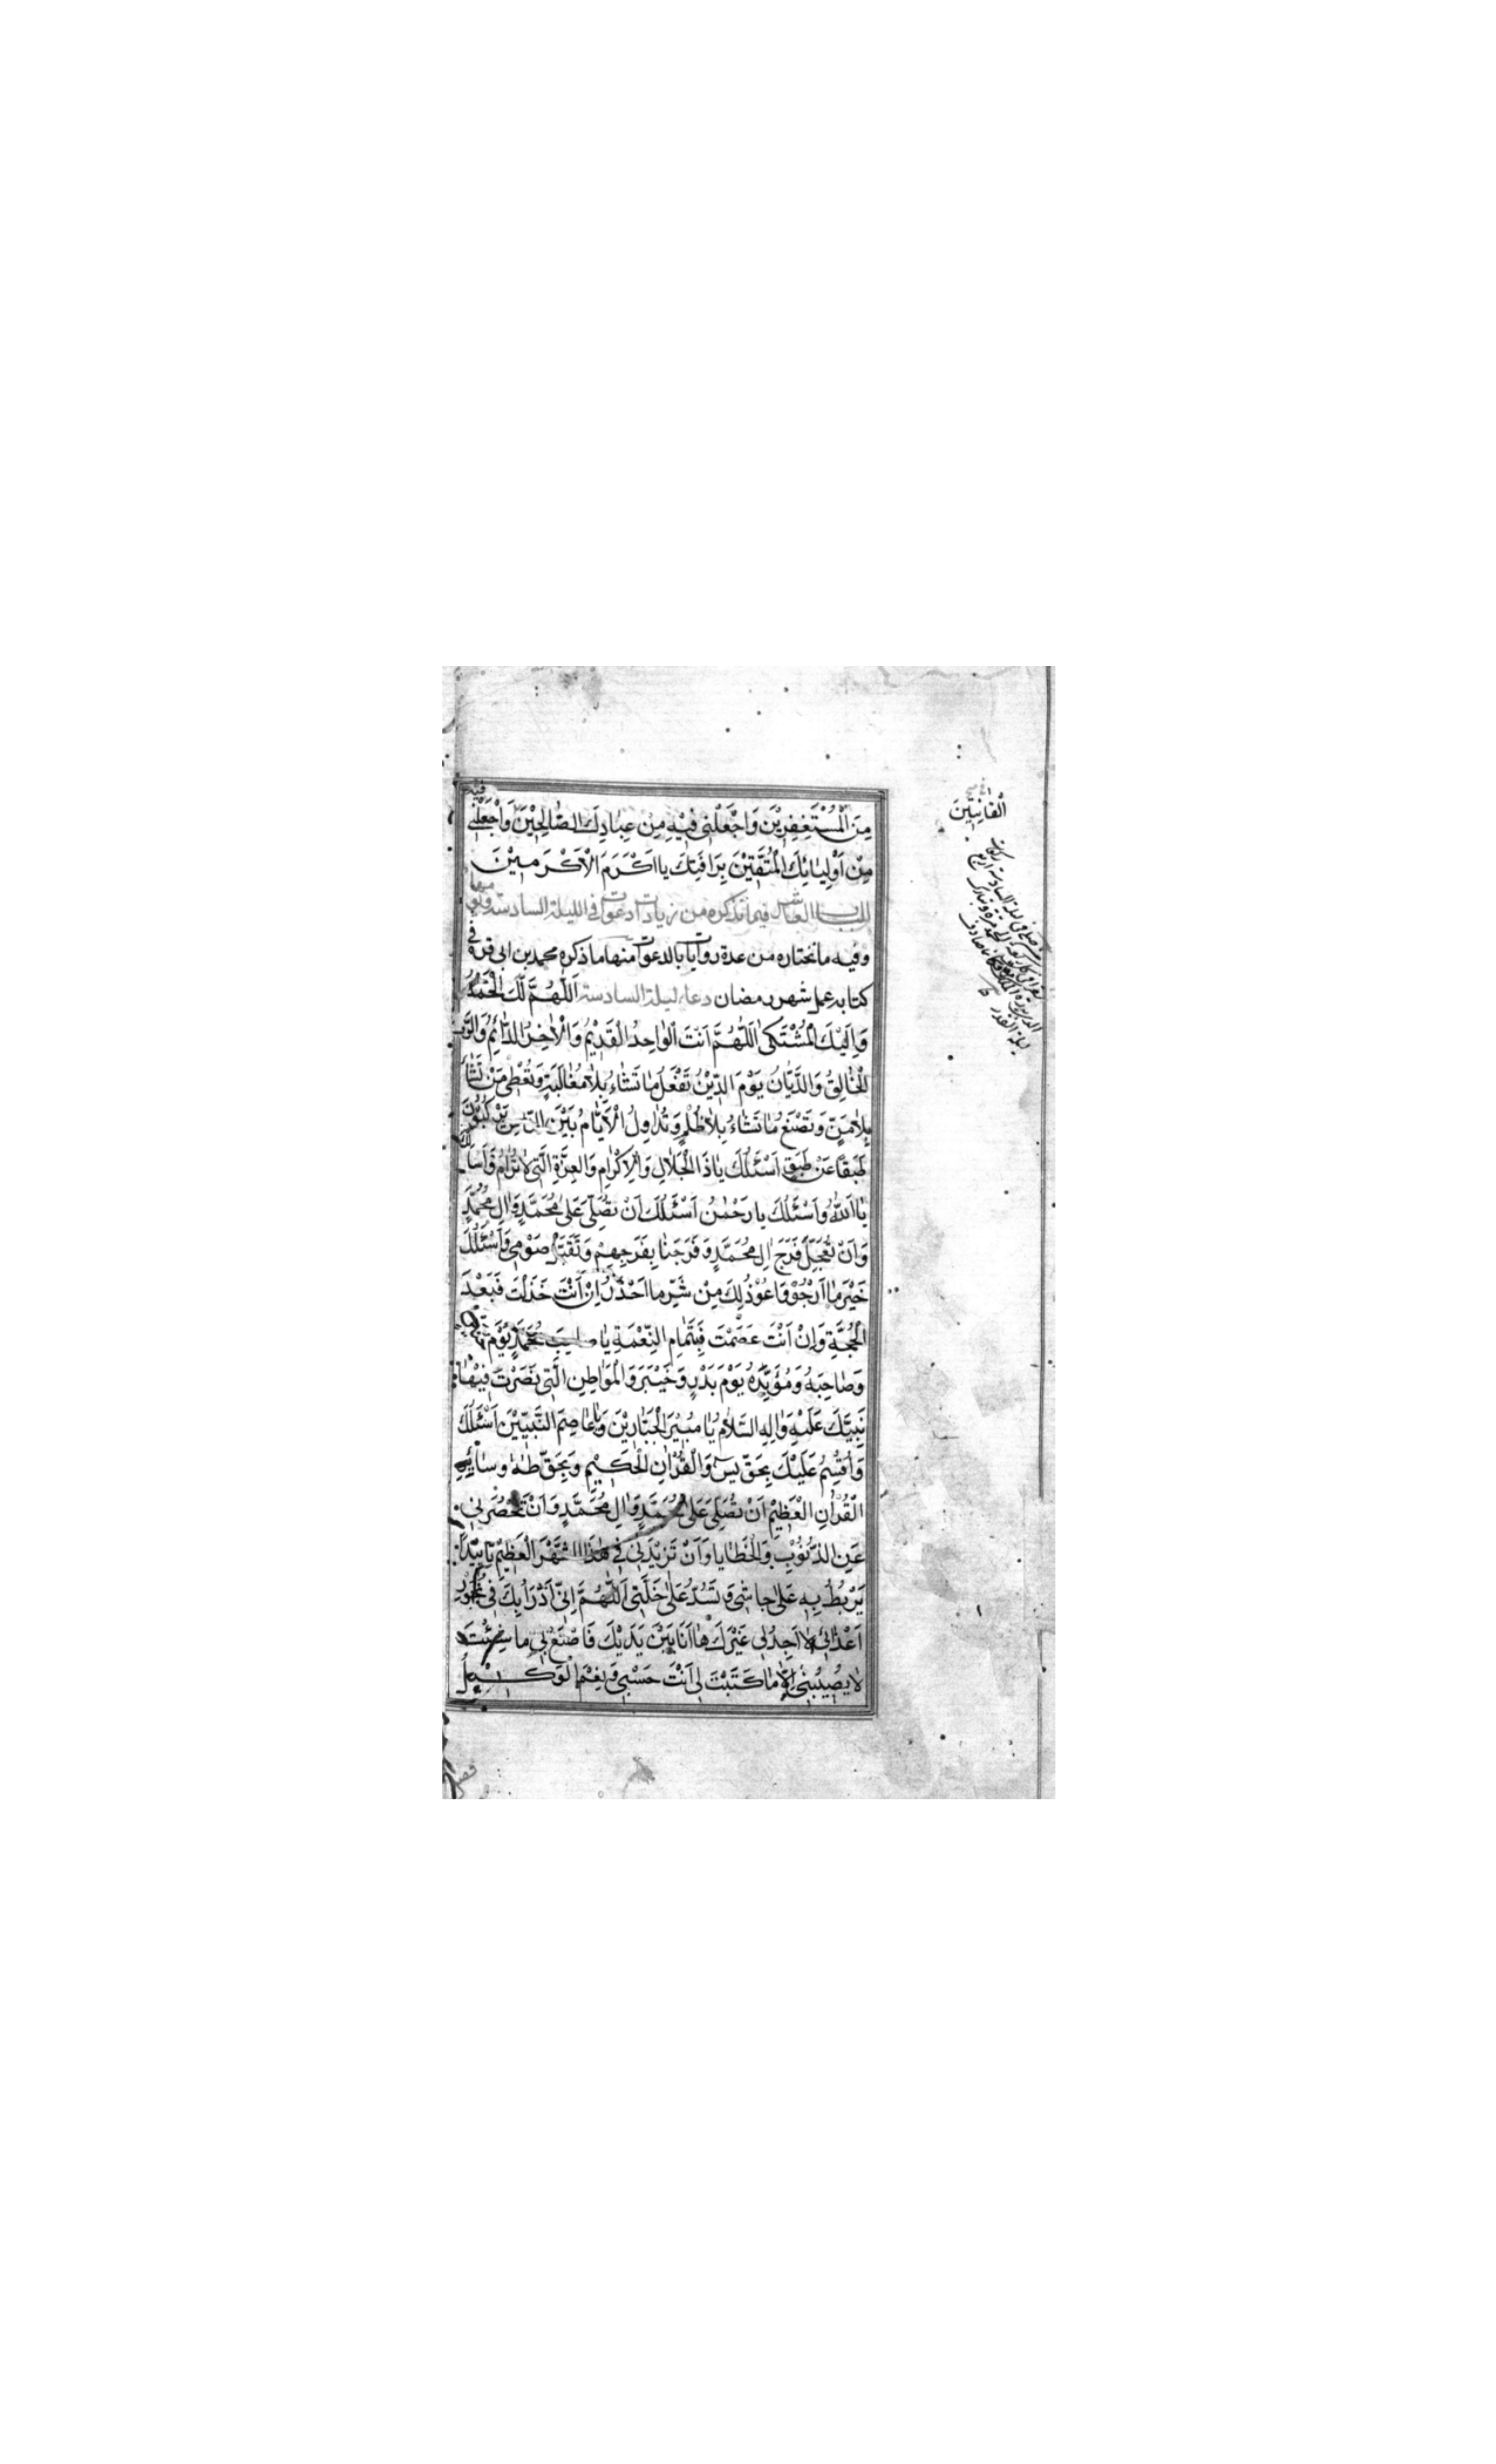 مِنَ الْمُسْتَغْفِرِيْنَ وَاجْعَلْنِي فِيْهِ مِنْ عِبَادِكَ الصَّالِحِيْنَ وَاجْعَلْنِي فيه
مِنْ اَوْلِيَائِكَ الْمُتَّقِيْنَ بِرَافَتِكَ يا اَكْرَمَ الْاَكْرَمِيْنَ
الباب العاشر فيما نذكره من زيادات دعوات في الليلة السادسة ويومها
وفيه ما نختاره من عدة روايات بالدعوات منها ما ذكره محمد بن ابي قرة في
كتابه عمل شهر رمضان دعاء ليلة السادسة اَللّٰهُمَّ لَكَ الْحَمْدُ
وَاِلَيْكَ الْمُشْتَكىٰ اَللّٰهُمَّ اَنْتَ الْوَاحِدُ الْقَدِيْمُ وَالْاٰخِرُ الدَّائِمُ وَالرَّبُّ
الْخَالِقُ وَالدَّيَّانُ يَوْمَ الدِّيْنِ تَفْعَلُ مَا تَشَاءُ بِلَا مُغَالَبَةٍ وَتُعْطِي مَنْ تَشَاءُ
بِلَا مَنٍّ وَتَصْنَعُ مَا تَشَاءُ بِلَا ظُلْمٍ وَتُدَاوِلُ الْاَيَّامَ بَيْنَ النَّاسِ يَرْكَبُوْنَ
طَبَقًا عَنْ طَبَقٍ اَسْئَلُكَ يَا ذَا الْجَلَالِ وَالْاِكْرَامِ وَالْعِزَّةِ الَّتِي لَا تُرَامُ وَاَسْاَلُكَ
يَا اَللّٰهُ وَاَسْئَلُكَ يا رَحْمٰنُ اَسْئَلُكَ اَنْ تُصَلِّيَ عَلىٰ مُحَمَّدٍ وَاٰلِ مُحَمَّدٍ
وَاَنْ تُعَجِّلَ فَرَجَ اٰلِ مُحَمَّدٍ وَفَرَجَنَا بِفَرَجِهِمْ وَتَقَبَّلْ صَوْمِي وَاَسْئَلُكَ
خَيْرَ مَا اَرْجُوْ وَاَعُوْذُ بِكَ مِنْ شَرِّ مَا اَحْذَرُ اِنْ اَنْتَ خَذَلْتَ فَبَعْدَ
الْحُجَّةِ وَاِنْ اَنْتَ عَصَمْتَ فَبِتَمَامِ النِّعْمَةِ يَا صَاحِبَ مُحَمَّدٍ يَوْمَ
وَصَاحِبَهُ وَمُؤَيِّدَهُ يَوْمَ بَدْرٍ وَخَيْبَرَ وَالْمَوَاطِنِ الَّتِي نَصَرْتَ فِيْهَا
نَبِيَّكَ عَلَيْهِ وَاٰلِهِ السَّلَامُ يَا مُبِيْرَ الْجَبَّارِيْنَ وَيَا عَاصِمَ النَّبِيِّيْنَ اَسْئَلُكَ
وَاُقْسِمُ عَلَيْكَ بِحَقِّ يسٓ وَالْقُرْاٰنِ الْحَكِيْمِ وَبِحَقِّ طٰهٰ وَسَائِرِ
الْقُرْاٰنِ الْعَظِيْمِ اَنْ تُصَلِّيَ عَلىٰ مُحَمَّدٍ وَاٰلِ مُحَمَّدٍ وَاَنْ تَحْصُرَنِي
عَنِ الذُّنُوْبِ وَالْخَطَايَا وَاَنْ تَزِيْدَنِي فِي هٰذَا الشَّهْرِ الْعَظِيْمِ تَاْيِيْدًا
يَرْبُطُ بِهِ عَلىٰ جاشِي وَتَسُدُّ عَلىٰ خَلَّتِي اَللّٰهُمَّ اِنِّي اَدْرَاُ بِكَ فِي نُحُوْرِ
اَعْدَائِي لَا اَجِدُ لِي غَيْرَكَ هَا اَنَا بَيْنَ يَدَيْكَ فَاصْنَعْ بِي مَا شِئْتَ
لَا يُصِيْبُنِي اِلَّا مَا كَتَبْتَ لِي اَنْتَ حَسْبِي وَنِعْمَ الْوَكِيْلُ
الْقَانِتِيْنَ
ليلة القدر